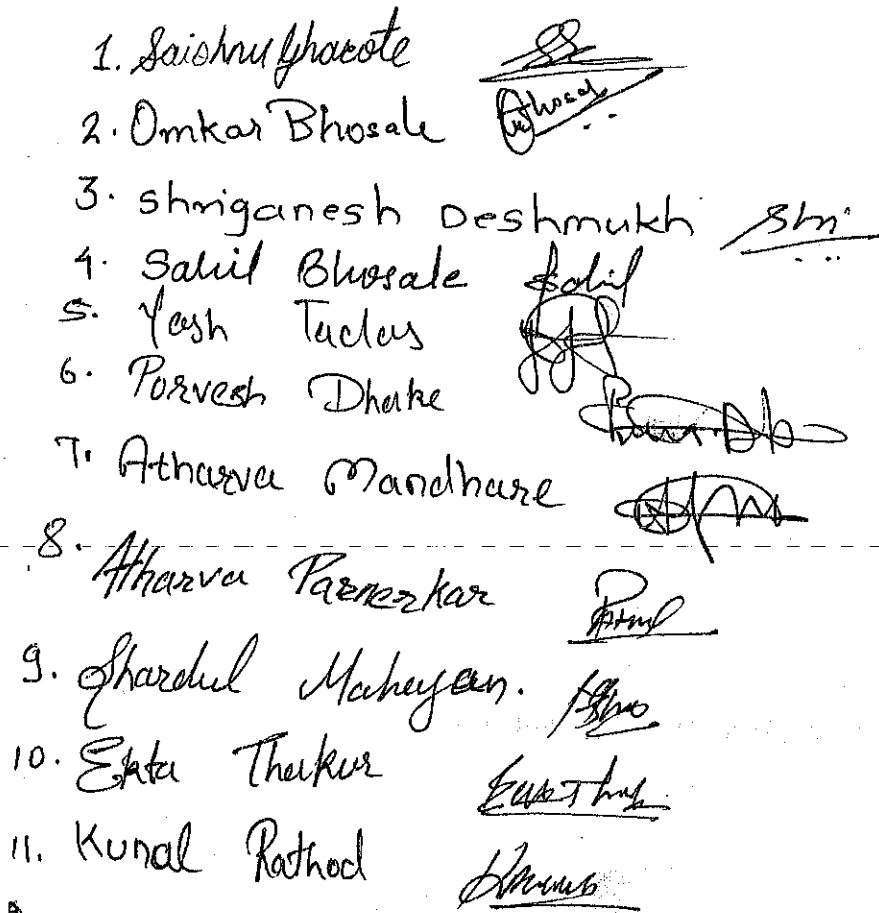 1. Saishnu Gharote
2. Omkar Bhosale Bhosal
3. Shriganesh Deshmukh Shri
4. Sahil Bhosale Sahil
5. Yash Tadas
6. Porvesh Dhake
7. Atharva Mandhare
8. Atharva Parnerkar
9. Shardul Maheyan.
10. Ekta Thakur
11. Kunal Rathod